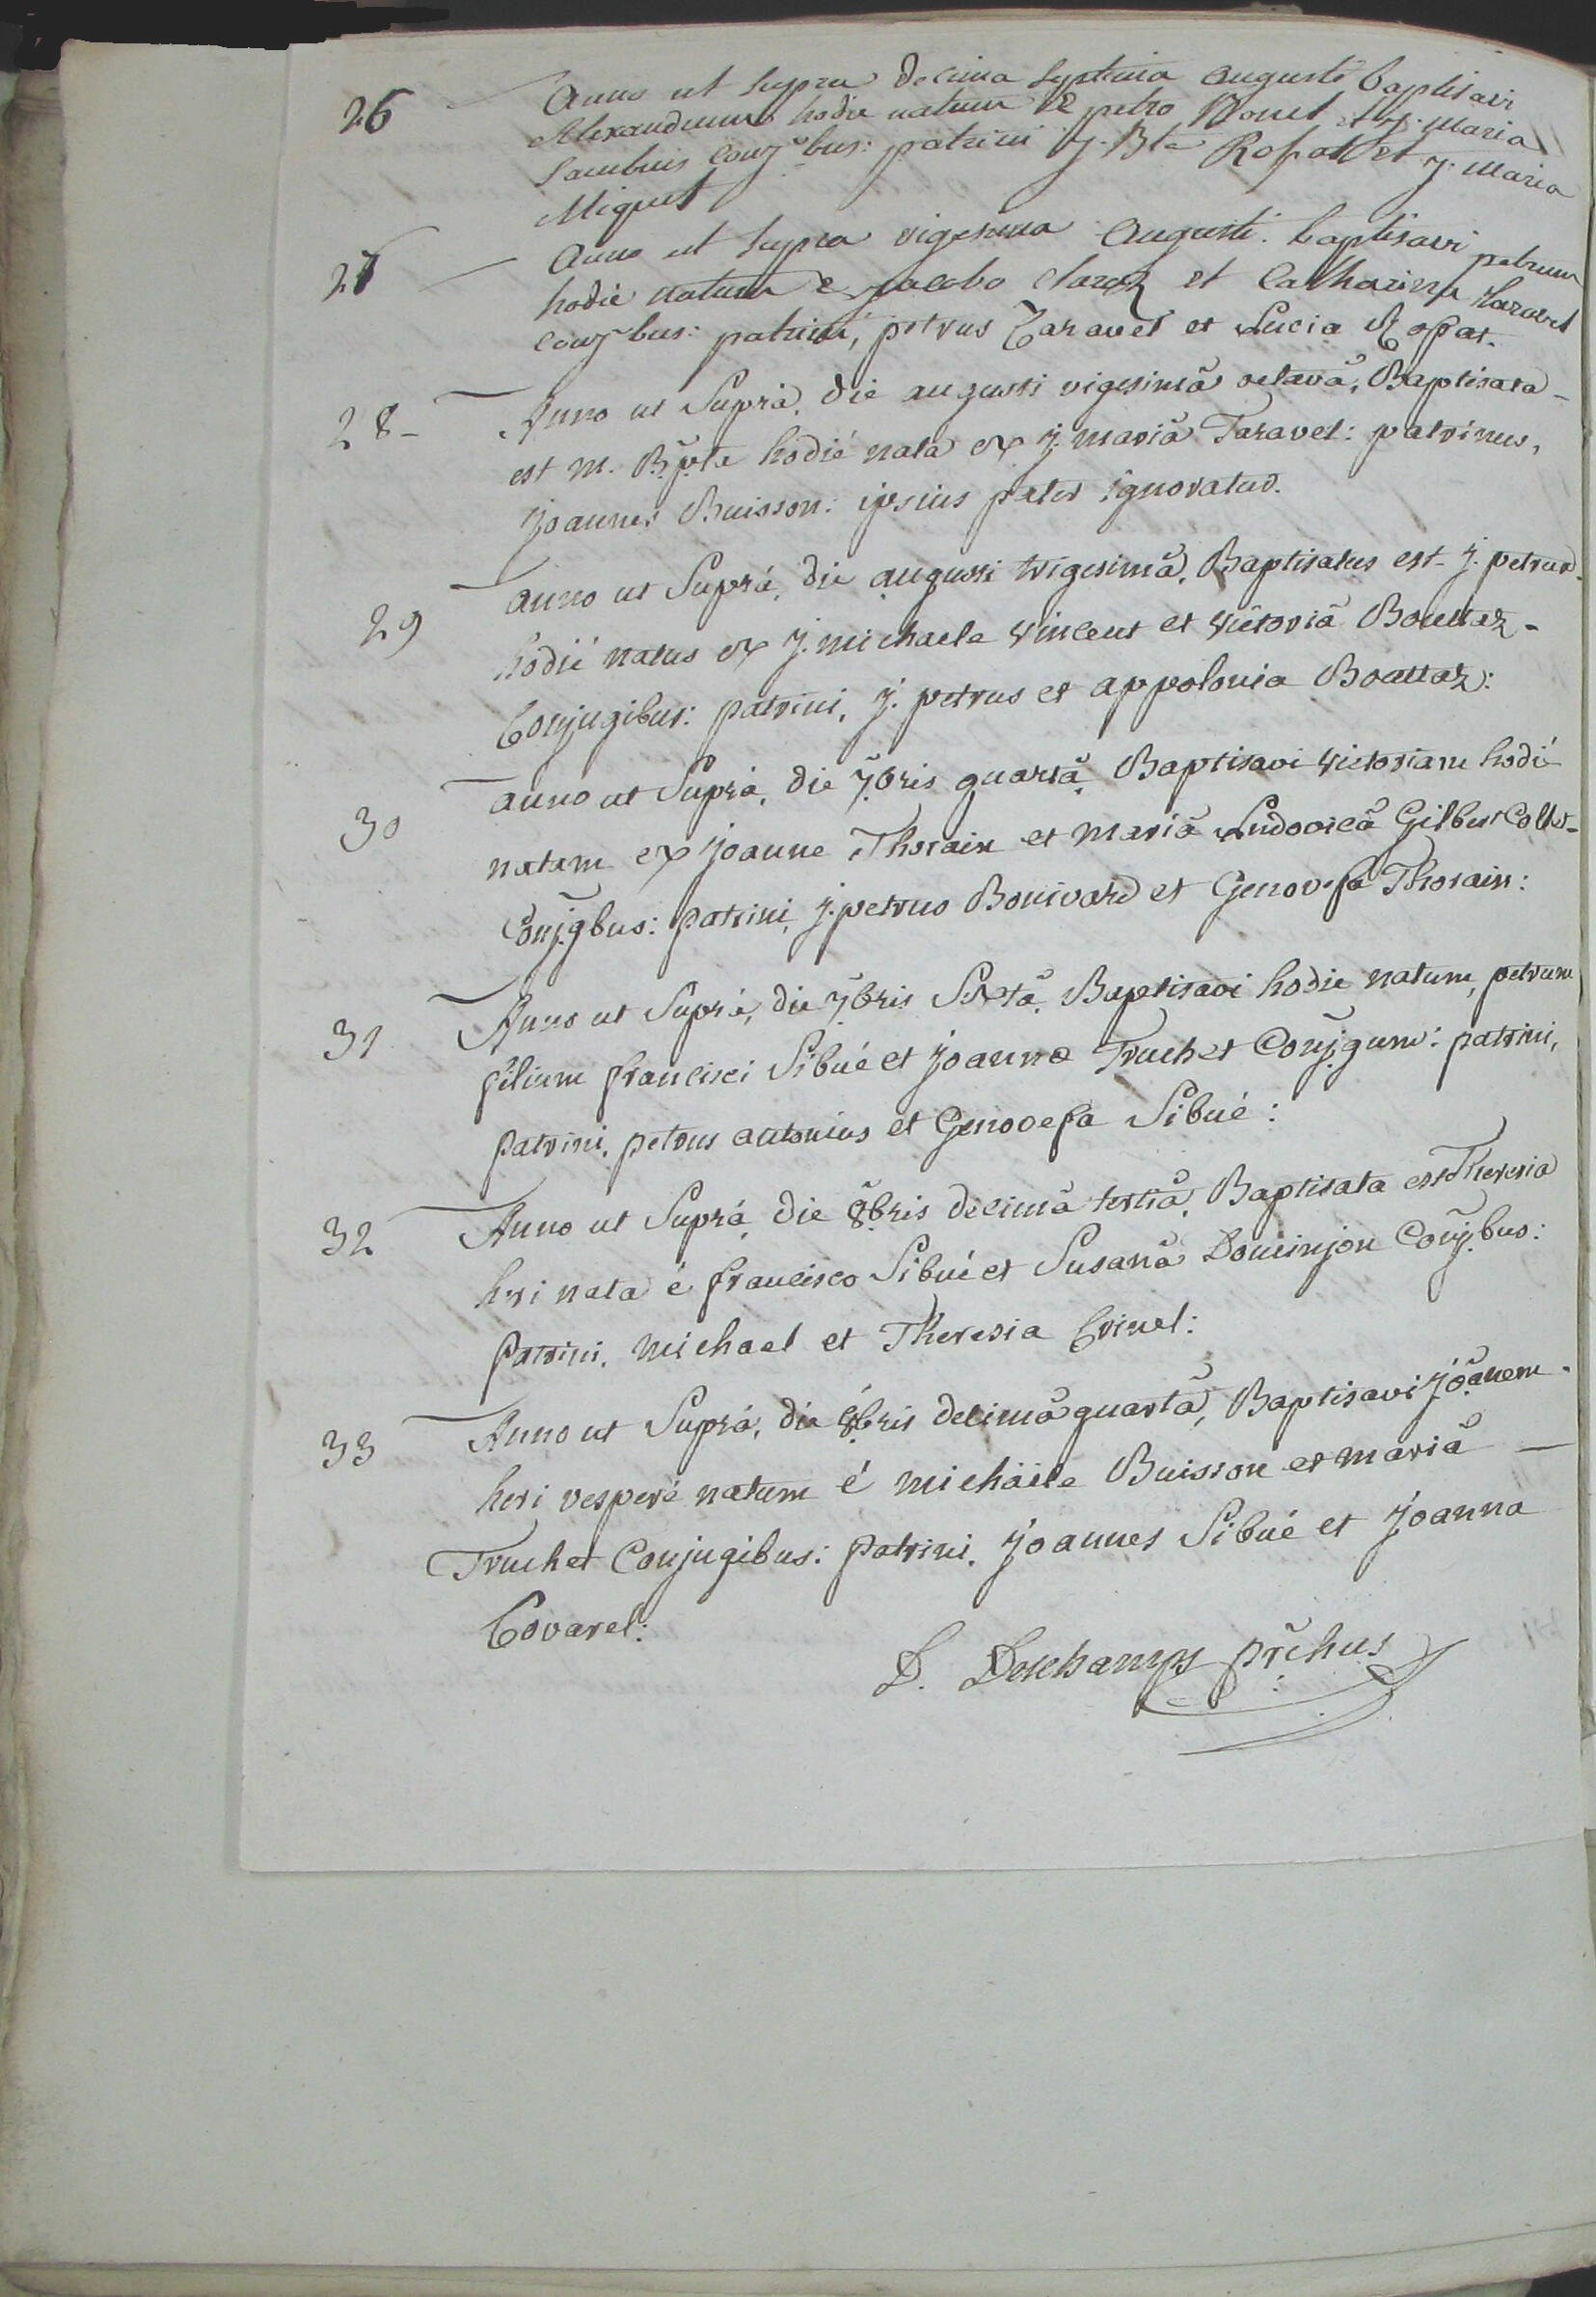 26 Anno ut supra decima septima augusti baptisavi
Alexandrum hodie natum e petro Donet et j. maria
Sambuis conj̃bus: patrini j. Bta Rofat et j. maria
Miquet
27 Anno ut supra vigesima augusti. baptisavi petrum
hodie natum e jacobo claraz et Catharina taravel
conj̃bus: patrini, petrus Taravel et Lucia Rofat.
28- Anno ut Suprà, die augusti vigesimâ octavâ, Baptisata-
est m. B̃pta hodié nata ex j. mariâ Taravel: patrinus,
joannes Buisson: ipsius pater ignoratur.
29 anno ut Supră, die augusti trigesimâ, Baptisatus est j. petrus
hodié natus ex j. michaele vincent et victoriâ Bouttaz-
Conjugibus: patrini, j. petrus et appolonia Bouttaz:
30 anno ut Suprà, die 7̃bris quartâ, Baptisavi victoriam hodié
natam ex joanne Thorain et mariâ Ludovicâ Gilbert Collet-
Conj̃gbus: patrini, j. petrus Bonivard et Genovefa Thorain:
31 Anno ut Supră, die 7̃bris Sextâ, Baptisavi hodie natum, petrum
filium francisci Sibué et joannæ Truchet Conj̃gum: patrini,
patrini, petrus antonius et Genovefa Sibué:
32 Anno ut Supră, die 8̃bris decimâ tertiâ, Baptisata est Theresia
heri nata é francisco Sibué et Susanâ Dominjon Conj̃bus:
patrini, michael et Theresia Crinel:
33 Anno ut Supră, die 8̃bris decimâ quartâ, Baptisavi jõanem-
heri vesperé natum é michäele Buisson et mariâ —
Truchet Conjugibus: patrini, joannes Sibué et joanna
Covarel:
D. Deschamps pr̃chus